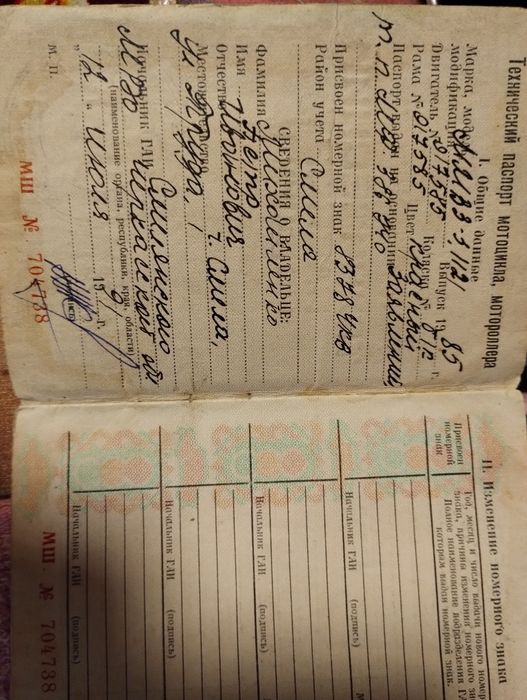 Технический паспорт мотоцикла, мотороллера
I. Общие данные
Марка, модель,
модификация ММВЗ-3.1121
Выпуск 19 85 г.
Двигатель № 017585
Коляска № б/к
Рама № 017585 Цвет красный
Паспорт выдан на основании заявления
Присвоен номерной знак 1378 ЧКФ
Район учета Смела
СВЕДЕНИЯ О ВЛАДЕЛЬЦЕ:
Фамилия
Имя Петр
Отчество Иванович
Местожительство г. Смела,
Начальник ГАИ Смелянского
(наименование органа, республики, края, области)
МРЭО Черкасской обл
"12" июля 19 г.
М. П.
(подпись)
МШ № 704738
II. Изменение номерного знака
Присвоен
номерной
знак
Год, месяц и число выдачи нового номер
знака, причина изменения номерного зн
Полное наименование подразделения Г
которым выдан номерной знак.
Начальник ГАИ
(подпись)
Начальник ГАИ
(подпись)
Начальник ГАИ
(подпись)
Начальник ГАИ
(подпись)
МШ. № 704738